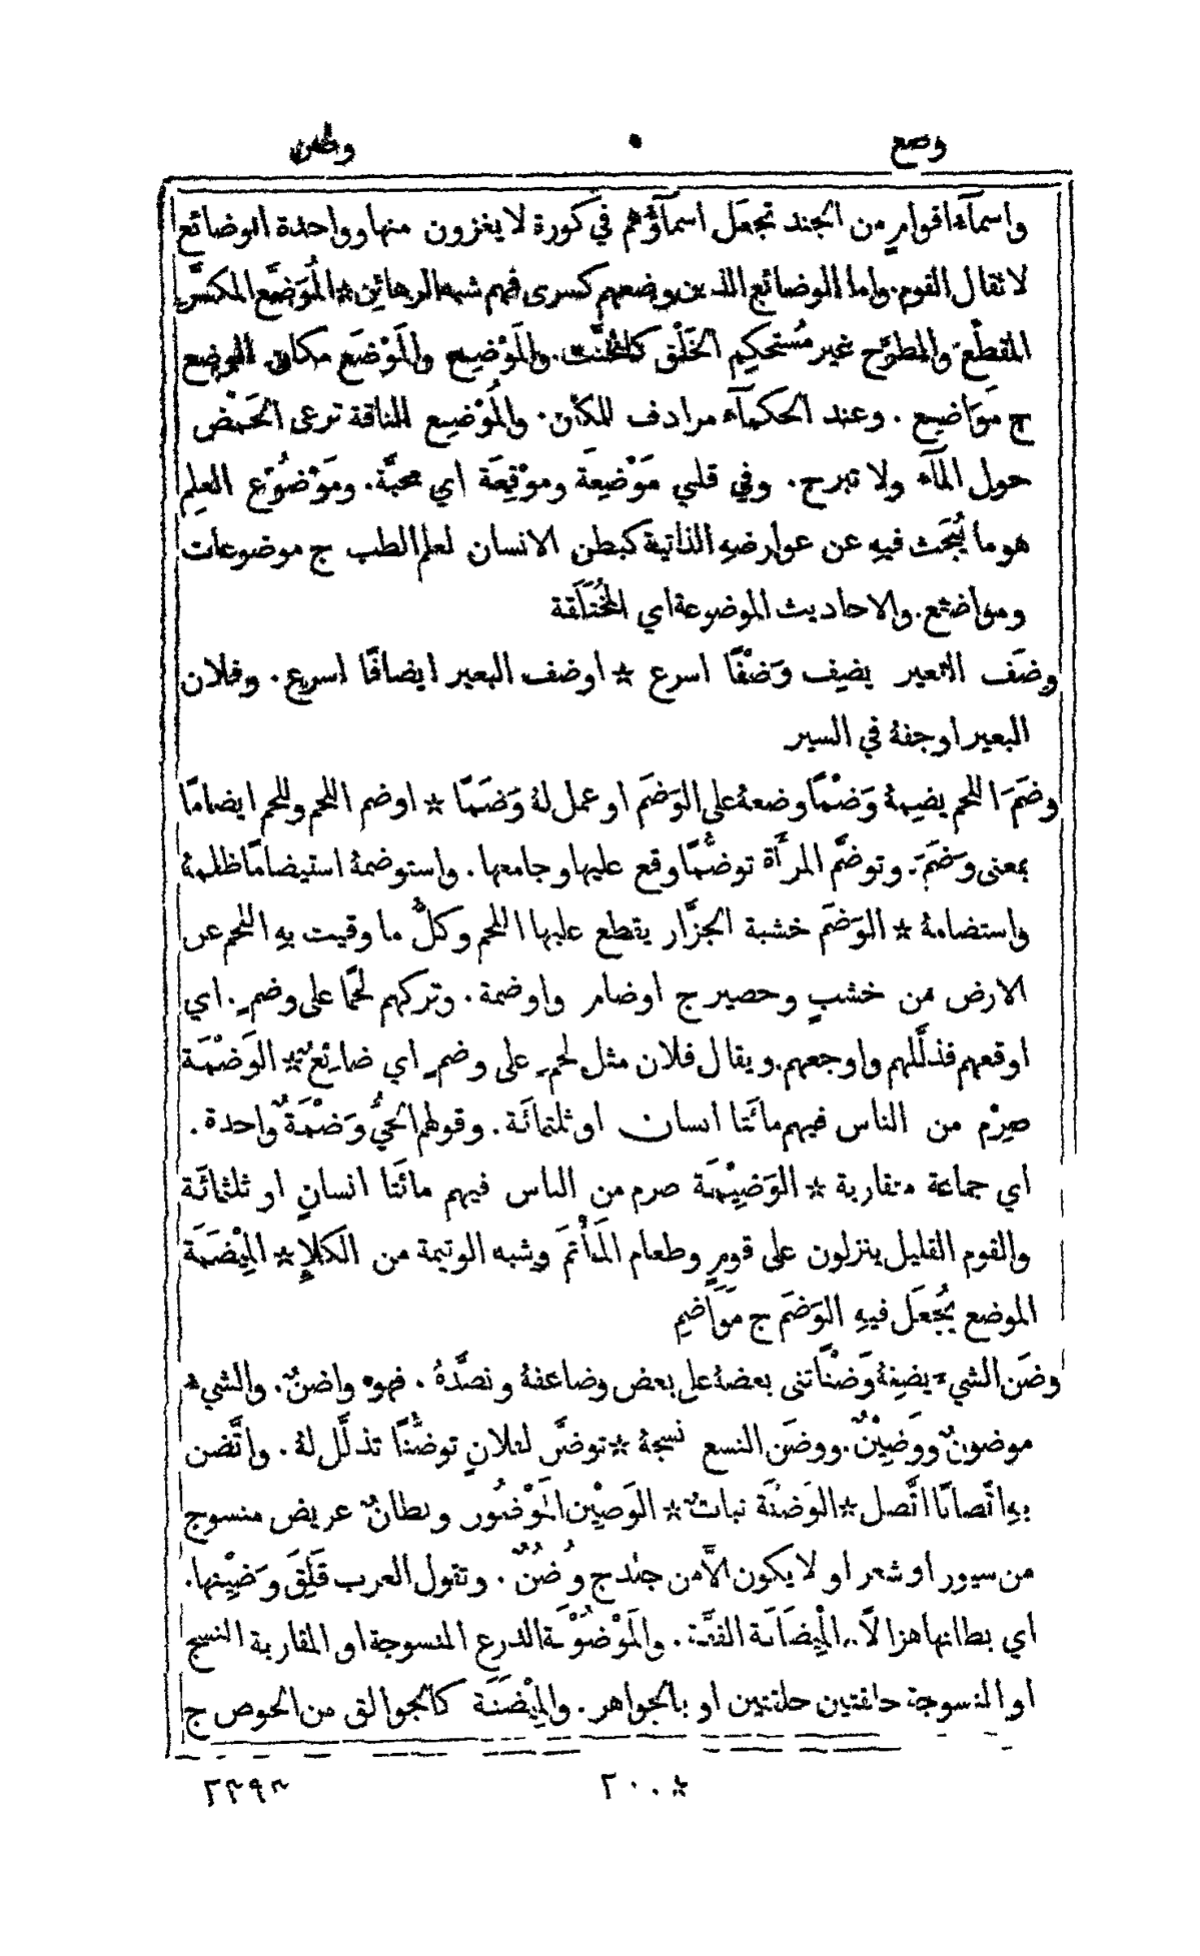 وضع • وطن
واسمآء اقوامٍ من الجند تجعَل اسمآؤُهم في كورة لا يغزون منها وواحدة الوضائع
لا تقال القوم. واما الوضائع الذين وضعهم كسرى فهم شبه الرهائن * المُوَضَّع المكسَّر
المقطَّع. والمطرَّح غير مُستحكِم الخَلْق كالمخنَّث. والمَوْضِع والمَوْضَع مكان الوضع
ج مَوَاضِع. وعند الحكمآء مرادف للمكان. والمُوْضِع للناقة ترعى الحَمْض
حول المآء ولا تبرح. وفي قلبي مَوْضِعَة وموْقِعَة اي محبَّة. ومَوْضُوْع العلمِ
هو ما يُبحَث فيهِ عن عوارضهِ الذاتية كبطن الانسان لعلم الطب ج موضوعات
ومواضيع. والاحاديث الموضوعة اي المُختَلَقة
وضَف البعير يضِف وَضْفًا اسرع * اوضف البعير ايضافًا اسرع. وفلان
البعير اوجفهُ في السير
وضَمَ اللحم يضِمهُ وَضْمًا وضعهُ على الوَضَم او عمل لهُ وَضَمًا * اوضم اللحم وللحم ايضامًا
بمعنى وَضَمَ. وتوضَّم المرأَة توضُّمًا وقع عليها وجامعها. واستوضمهُ استيضامًا ظلمهُ
واستضامهُ * الوَضَم خشبة الجزَّار يقطع عليها اللحم وكلُّ ما وقيت بهِ اللحم عن
الارض من خشبٍ وحصير ج اوضام واوضمة. وتركهم لحمًا على وضمٍ. اي
اوقعهم فذلَّلهم واوجعهم. ويقال فلان مثل لحمٍ على وضمٍ اي ضائِعٌ * الوَضْمَة
صِرْم من الناس فيهم مائَتا انسان او ثلثمائَة. وقولهم الحيُّ وَضْمَةٌ واحدة.
اي جماعة متقاربة * الوَضِيْمَة صرم من الناس فيهم مائَتا انسانٍ او ثلثمائَة
والقوم القليل ينزلون على قومٍ وطعام المَأْتمَ وشبه الوتيمة من الكَلَإِ * المِيْضَمَة
الموضع يُجعَل فيهِ الوَضَم ج مَوَاضِم
وضَن الشيءَ يضِنهُ وَضْنًا ثنى بعضهُ على بعض وضاعفهُ ونضَّدهُ. فهو واضنٌ. والشيء
موضونٌ ووَضِيْنٌ. ووضَن النسع نسجهُ * توضَّن لفلانٍ توضُّنًا تذلَّل لهُ. واتَّضن
بهِ اتّضانًا اتَّصل * الوَضْنَة نباتٌ * الوَضِيْن المَوْضُون وبطانٌ عريض منسوج
من سيور او شعر او لا يكون الَّا من جلد ج وُضُنٌ. وتقول العرب قَلِقَ وَضِيْنها.
اي بطانها هزالًا. المِيْضَانَة القفَّة. والمَوْضُوْنَة الدرع المنسوجة او المقاربة النسج
او المنسوجة حلقتين حلقتين او بالجواهر. والمِيْضَنَة كالجوالق من الخوص ج